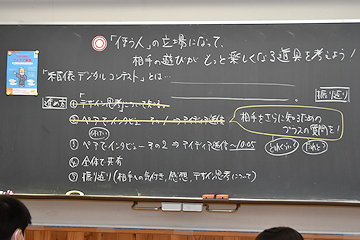 ◎「使う人」の立場になって、
相手の遊びが もっと楽しくなる道具を考えよう！
デジタルコンテスト」とは…
進め方
振り返り
① デザイン思考について
② ペアでインタビュー その1→アイディア発信
相手をさらに知るための
プラスの質問を！
③ ペアでインタビュー その2→アイディア発信～10:05
④ 全体で共有
⑤ 振り返り(相手への気付き、感想、デザイン思考について)